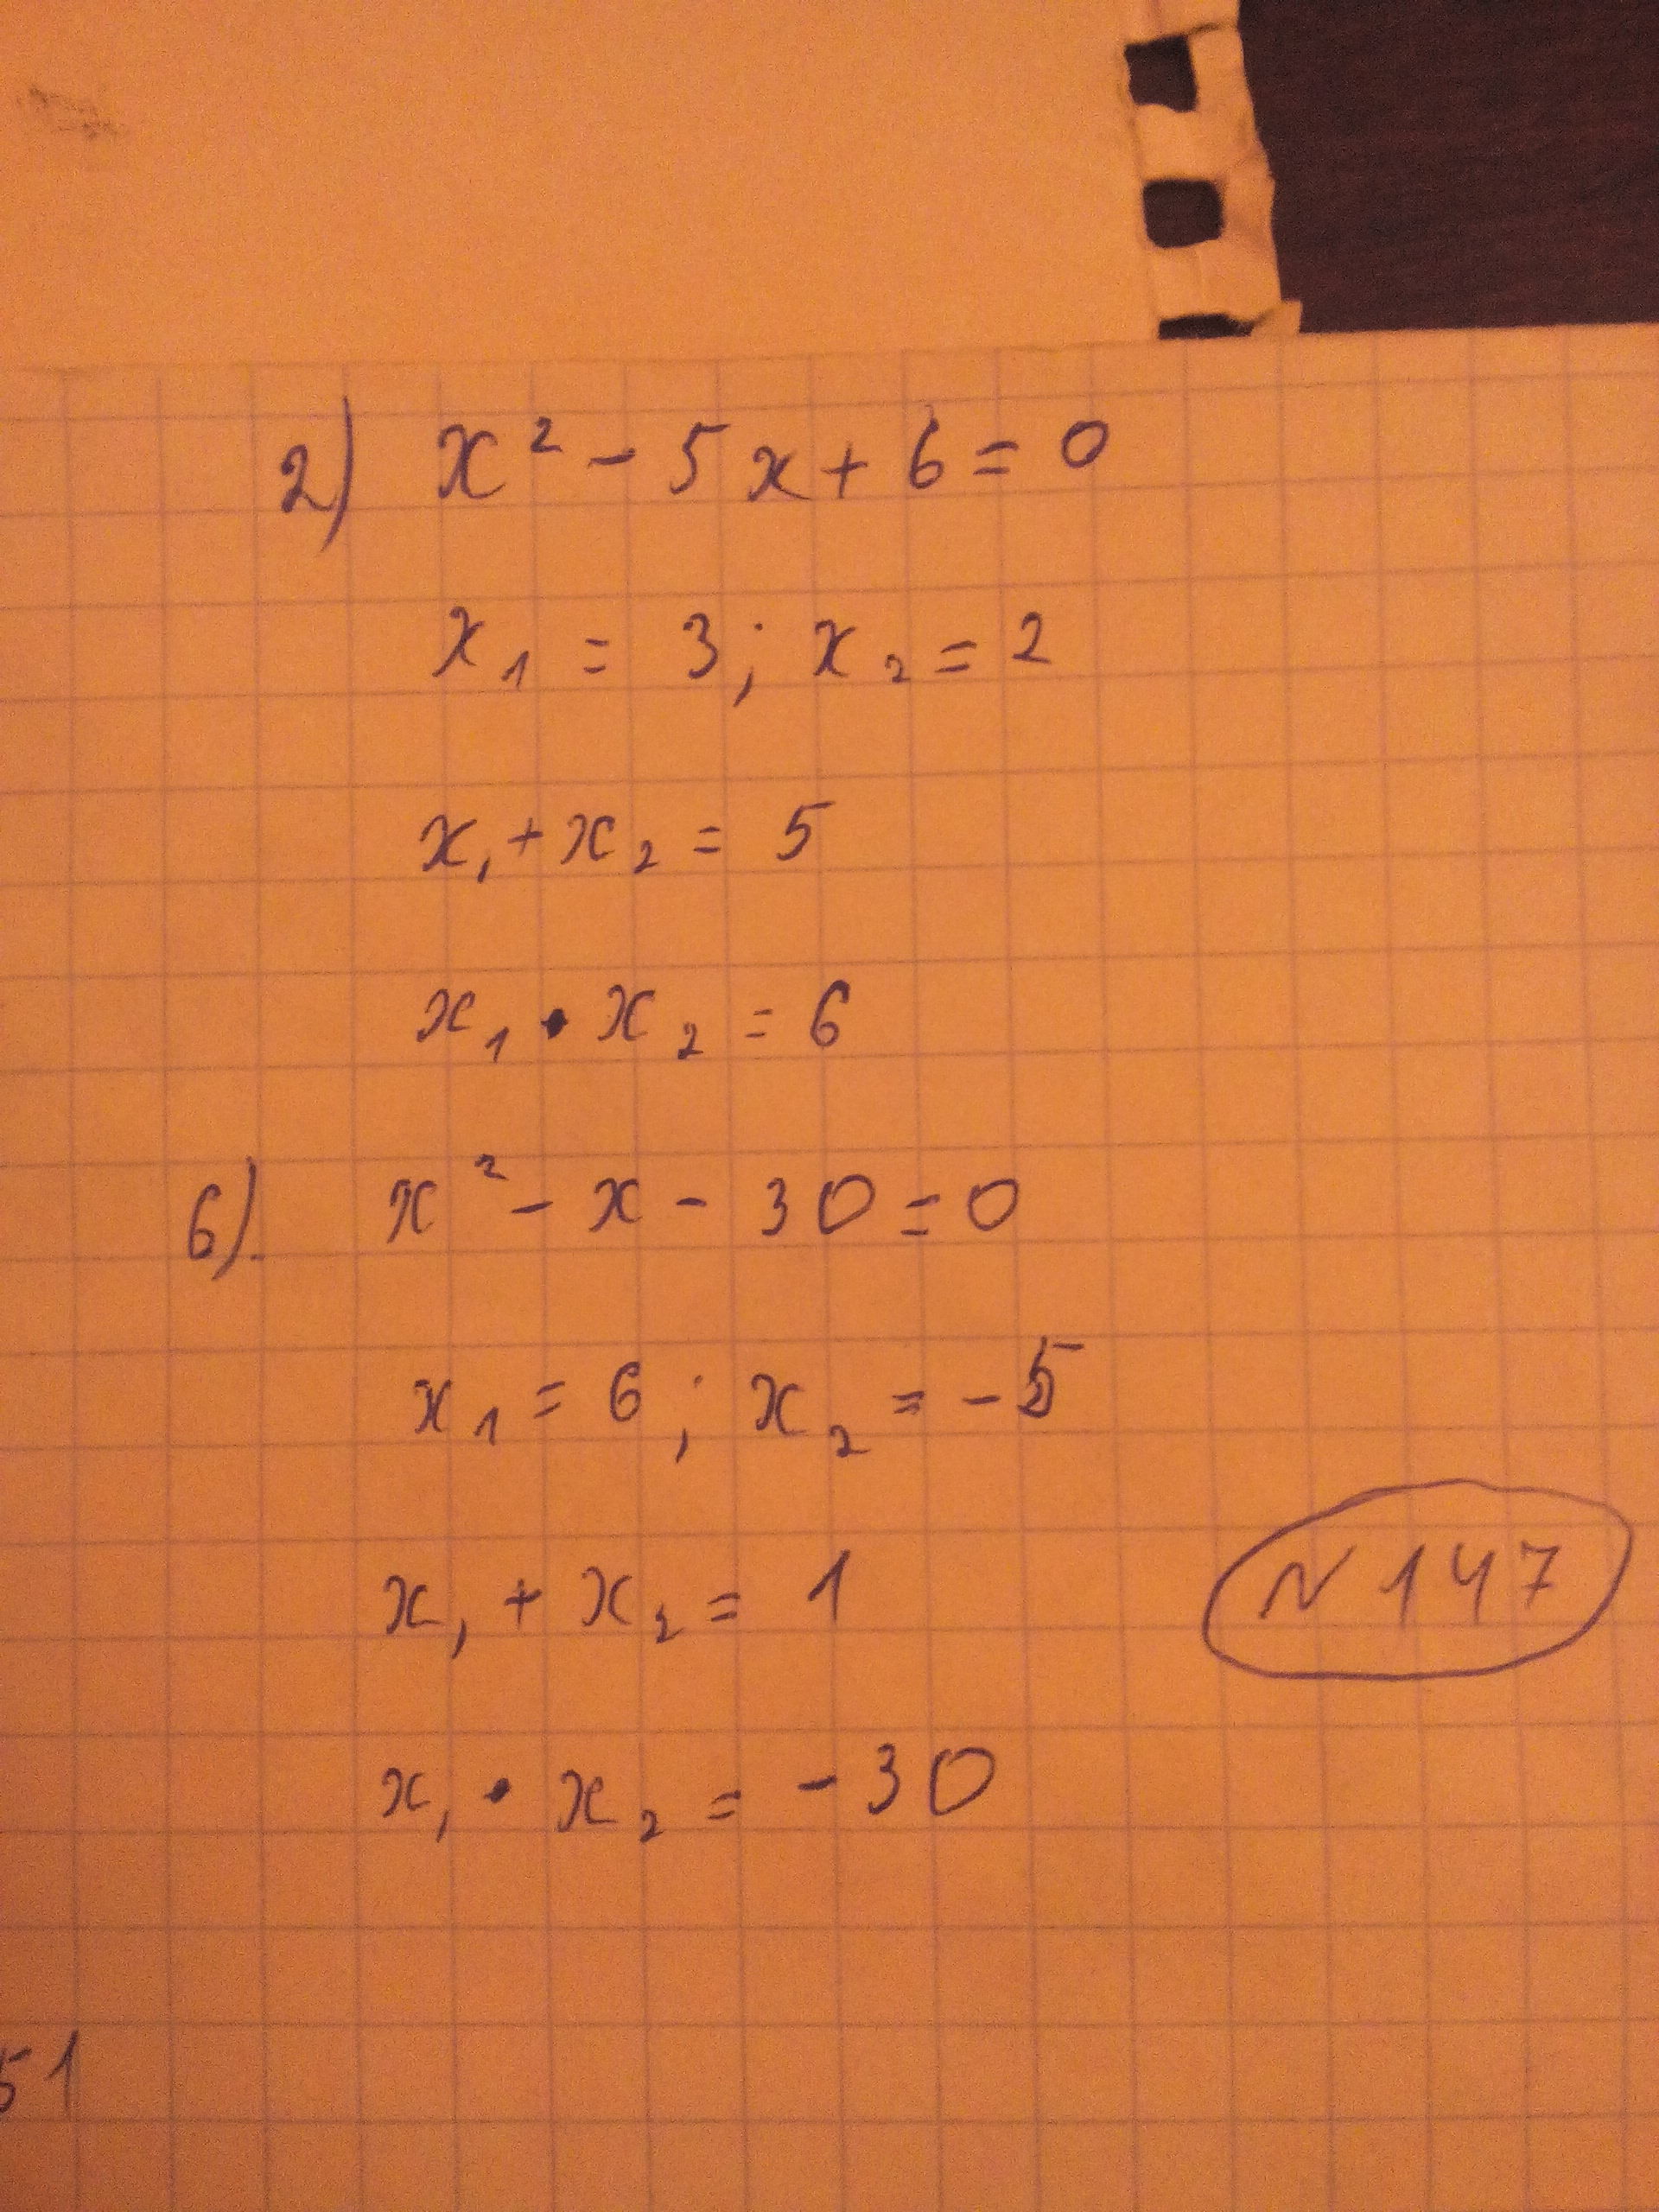 2) x² - 5x + 6 = 0
x₁ = 3; x₂ = 2
x₁ + x₂ = 5
x₁ • x₂ = 6
6). x² - x - 30 = 0
x₁ = 6; x₂ = -5
x₁ + x₂ = 1
N 147
x₁ • x₂ = -30
51